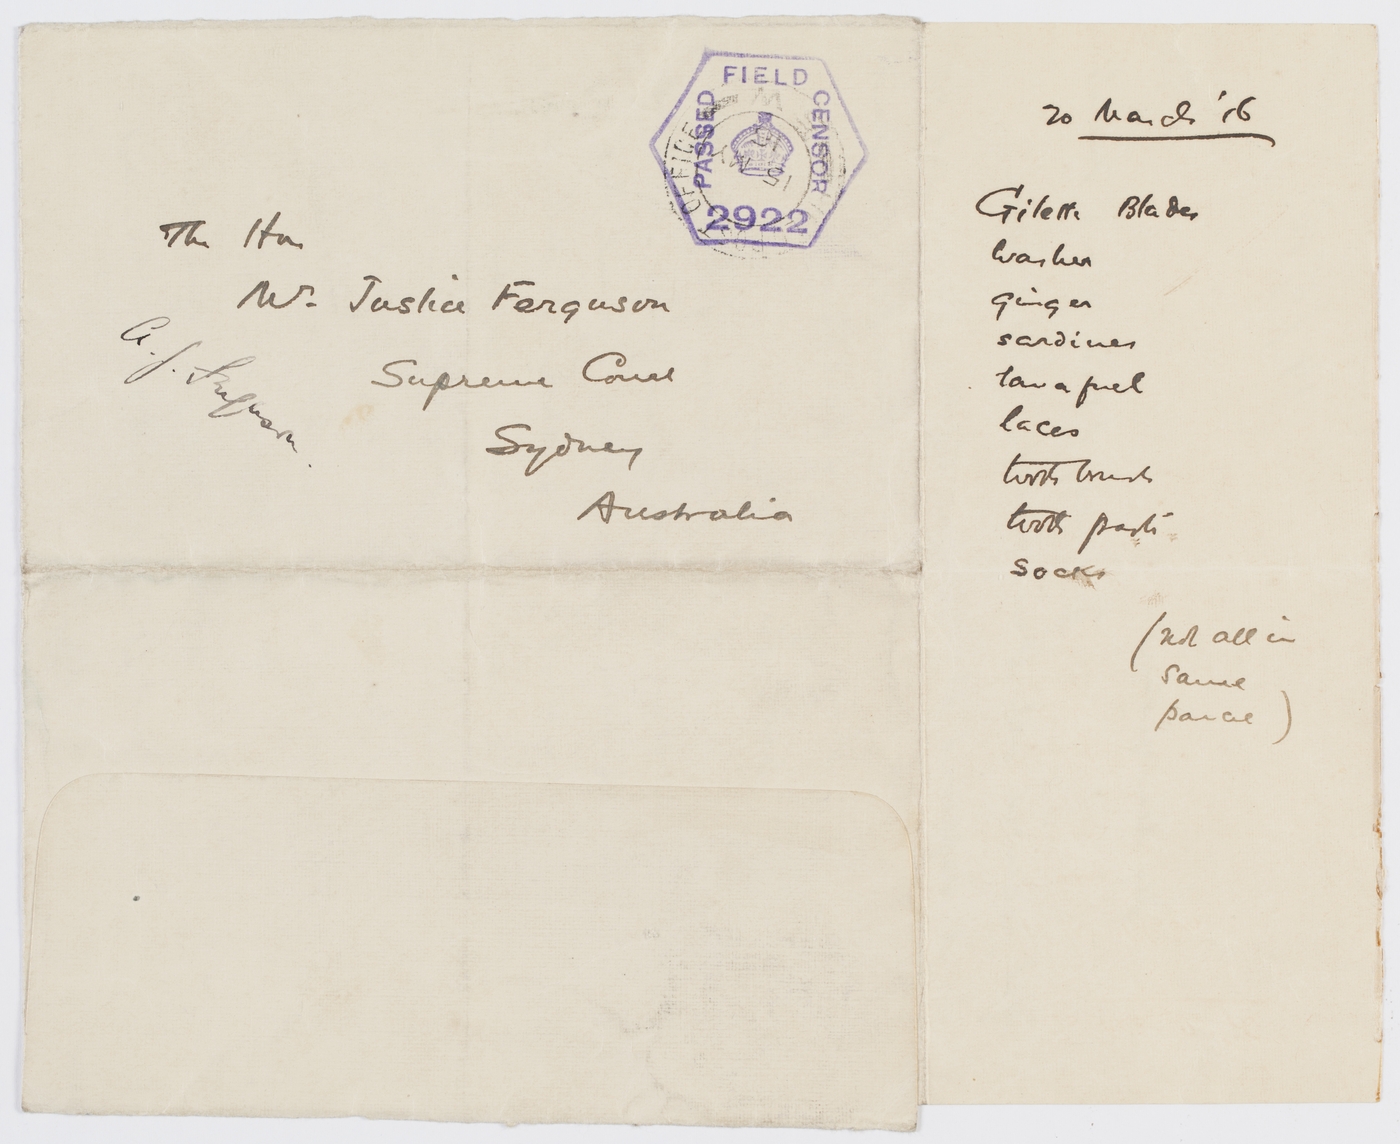 PASSED FIELD CENSOR
2922
OFFICE
The Hon
Mr. Justice Ferguson
Supreme Court
Sydney
Australia
A. J. Ferguson.
20 March '16
Gilette Blades
washer
ginger
sardines
lava fuel
laces
tooth brush
tooth paste
socks
(not all in
same
parcel)